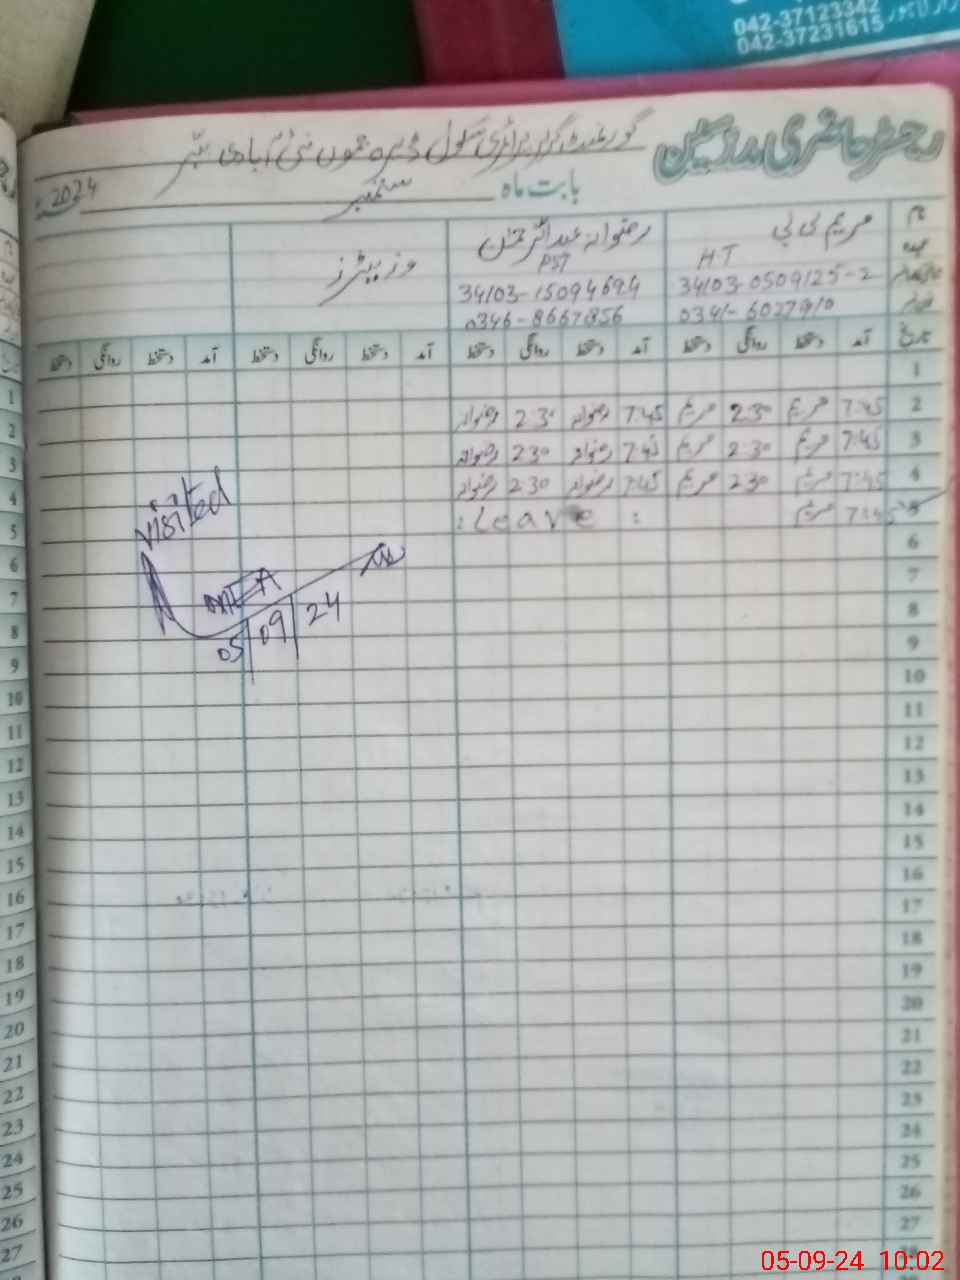 042-37123342
042-37231615
رجسٹر حاضری مدرسین گورنمنٹ گرلز پرائمری سکول
بابت ماہ ستمبر 2024ء
نام مریم بی بی رضوانہ عبدالرحمٰن وزیٹرز
عہدہ HT PST
34103-0509125-2 34103-15094694
0341-6027910 0346-8667856
تاریخ آمد دستخط روانگی دستخط آمد دستخط روانگی دستخط آمد دستخط روانگی دستخط آمد دستخط روانگی دستخط
1
2 7:45 مریم 2:30 مریم 7:45 رضوانہ 2:30 رضوانہ
3 7:45 مریم 2:30 مریم 7:45 رضوانہ 2:30 رضوانہ
4 7:45 مریم 2:30 مریم 7:45 رضوانہ 2:30 رضوانہ
5 7:45 مریم : Leave :
6
7
8
9
10
11
12
13
14
15
16
17
18
19
20
21
22
23
24
25
26
27
28
visited
MEA
05/09/24
1
2
3
4
5
6
7
8
9
10
11
12
13
14
15
16
17
18
19
20
21
22
23
24
25
26
27
05-09-24 10:02